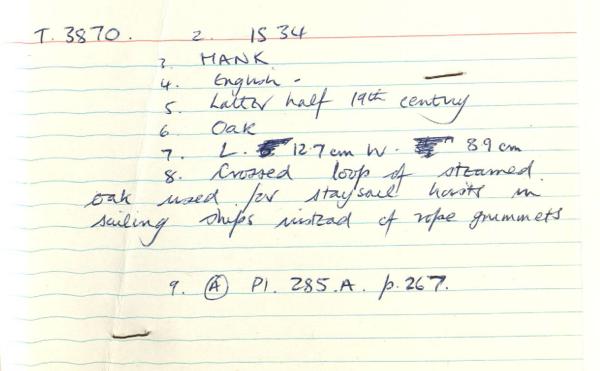 T. 3870. 2. IS 34
3. HANK
4. English -
5. Latter half 19th century
6. Oak
7. L. 12.7 cm W. 89 cm
8. Crossed loop of steamed
oak used for staysail hoists in
sailing ships instead of rope grummets
9. (A) Pl. 285.A. p. 267.